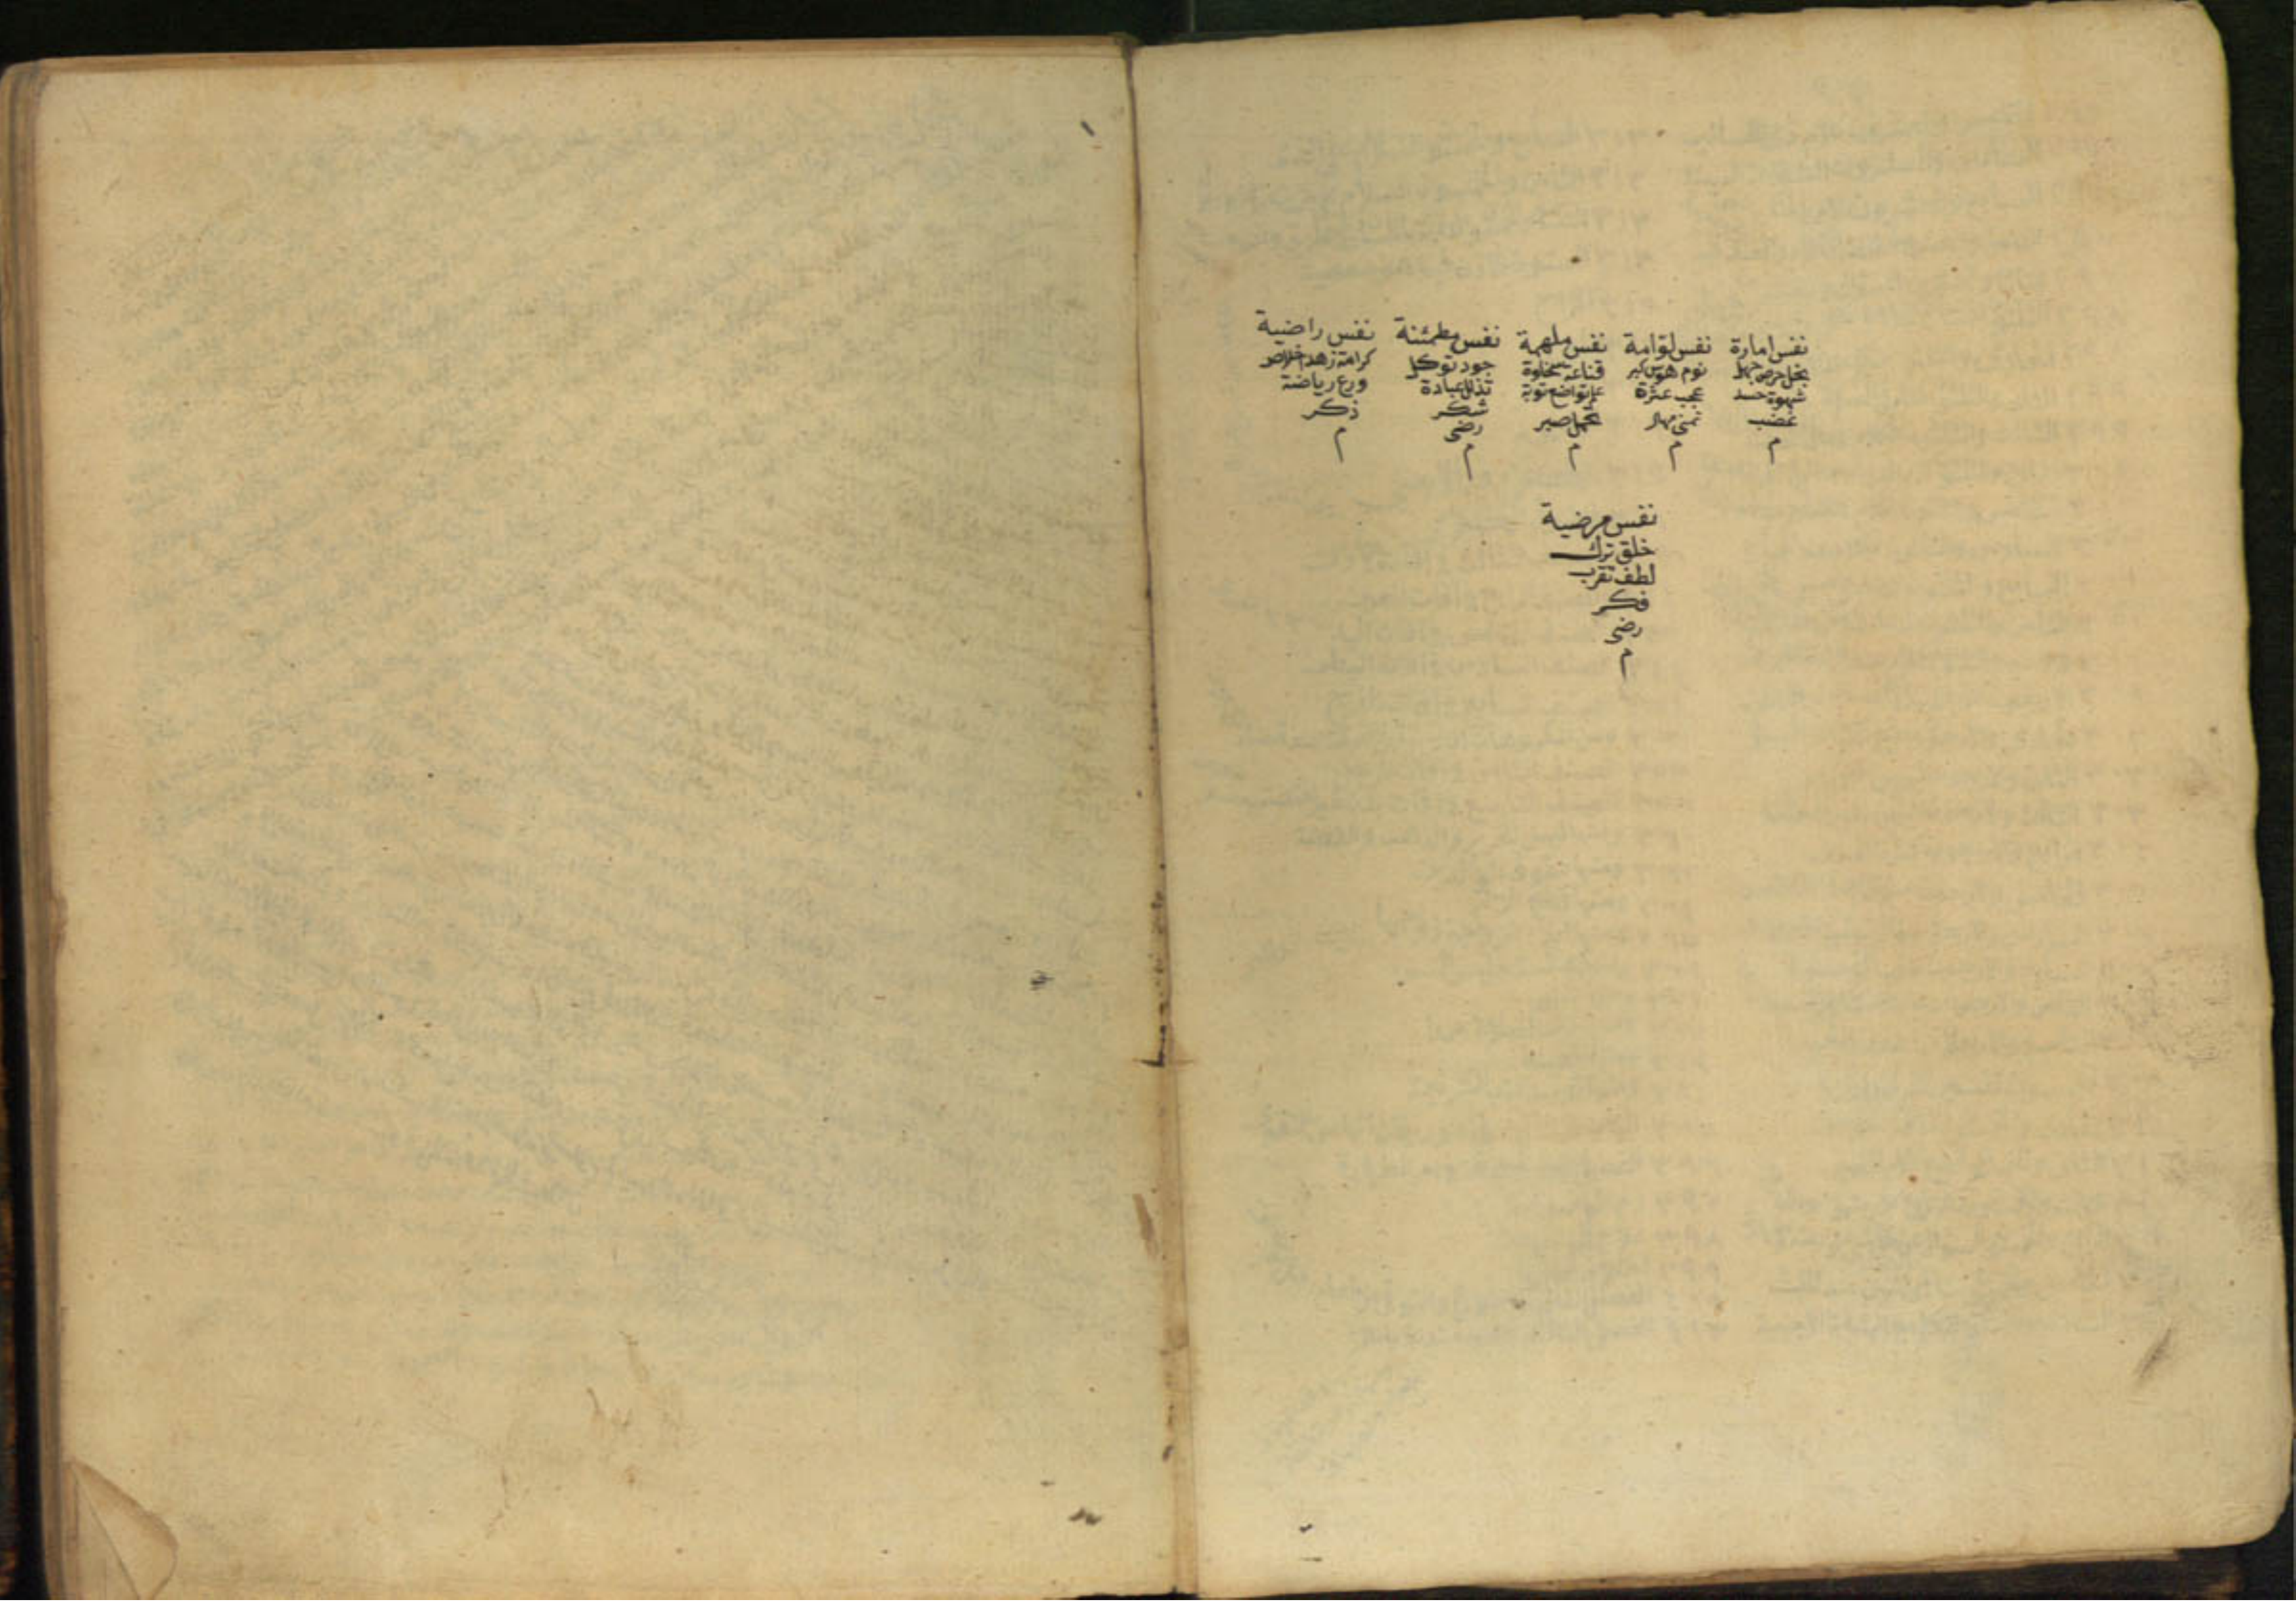 نفس امارة
بخل حرص جهل
شهوة حسد
غضب
م
نفس لوّامة
نوم هوس كبر
عجب عثرة
تمنى
م
نفس ملهمة
قناعة سخاوة
علم تواضع توبة
تحمل صبر
م
نفس مطمئنة
جود توكل
تذلل عبادة
شكر
رضى
م
نفس راضية
كرامة زهد اخلاص
ورع رياضة
ذكر
م
نفس مرضية
خلق ترك
لطف تقرب
فكر
رضى
م